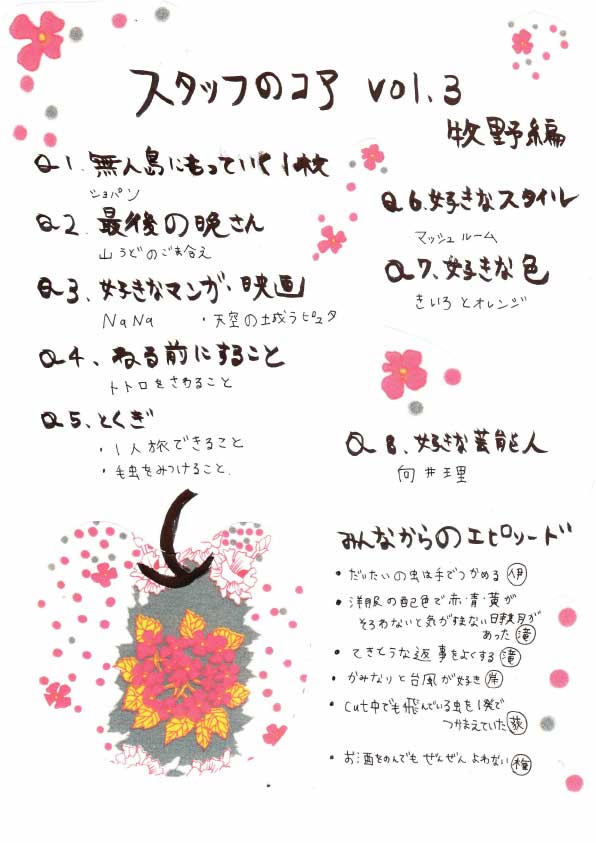 スタッフのコア vol.3
牧野編
Q1.無人島にもっていく1枚
ショパン
Q2.最後の晩さん
山うどのごま合え
Q3、好きなマンガ・映画
NaNa ・天空の土成ラピュタ
Q4、ねる前にすること
トトロをさわること
Q5、とくぎ
・1人旅できること
・毛虫をみつけること.
Q6.好きなスタイル
マッシュルーム
Q7、好きな色
きいろとオレンジ
Q8、好きな芸能人
向井理
みんなからのエピソード
・だいたいの虫は手でつかめる 伊
・洋服の配色で赤・青・黄が
そろわないと気がすまない時期が
あった 滝
・てきとうな返事をよくする 滝
・かみなりと台風が好き 岸
・cut中でも飛んでいる虫を1発で
つかまえていた 荻
・お酒をのんでもぜんぜんよわない